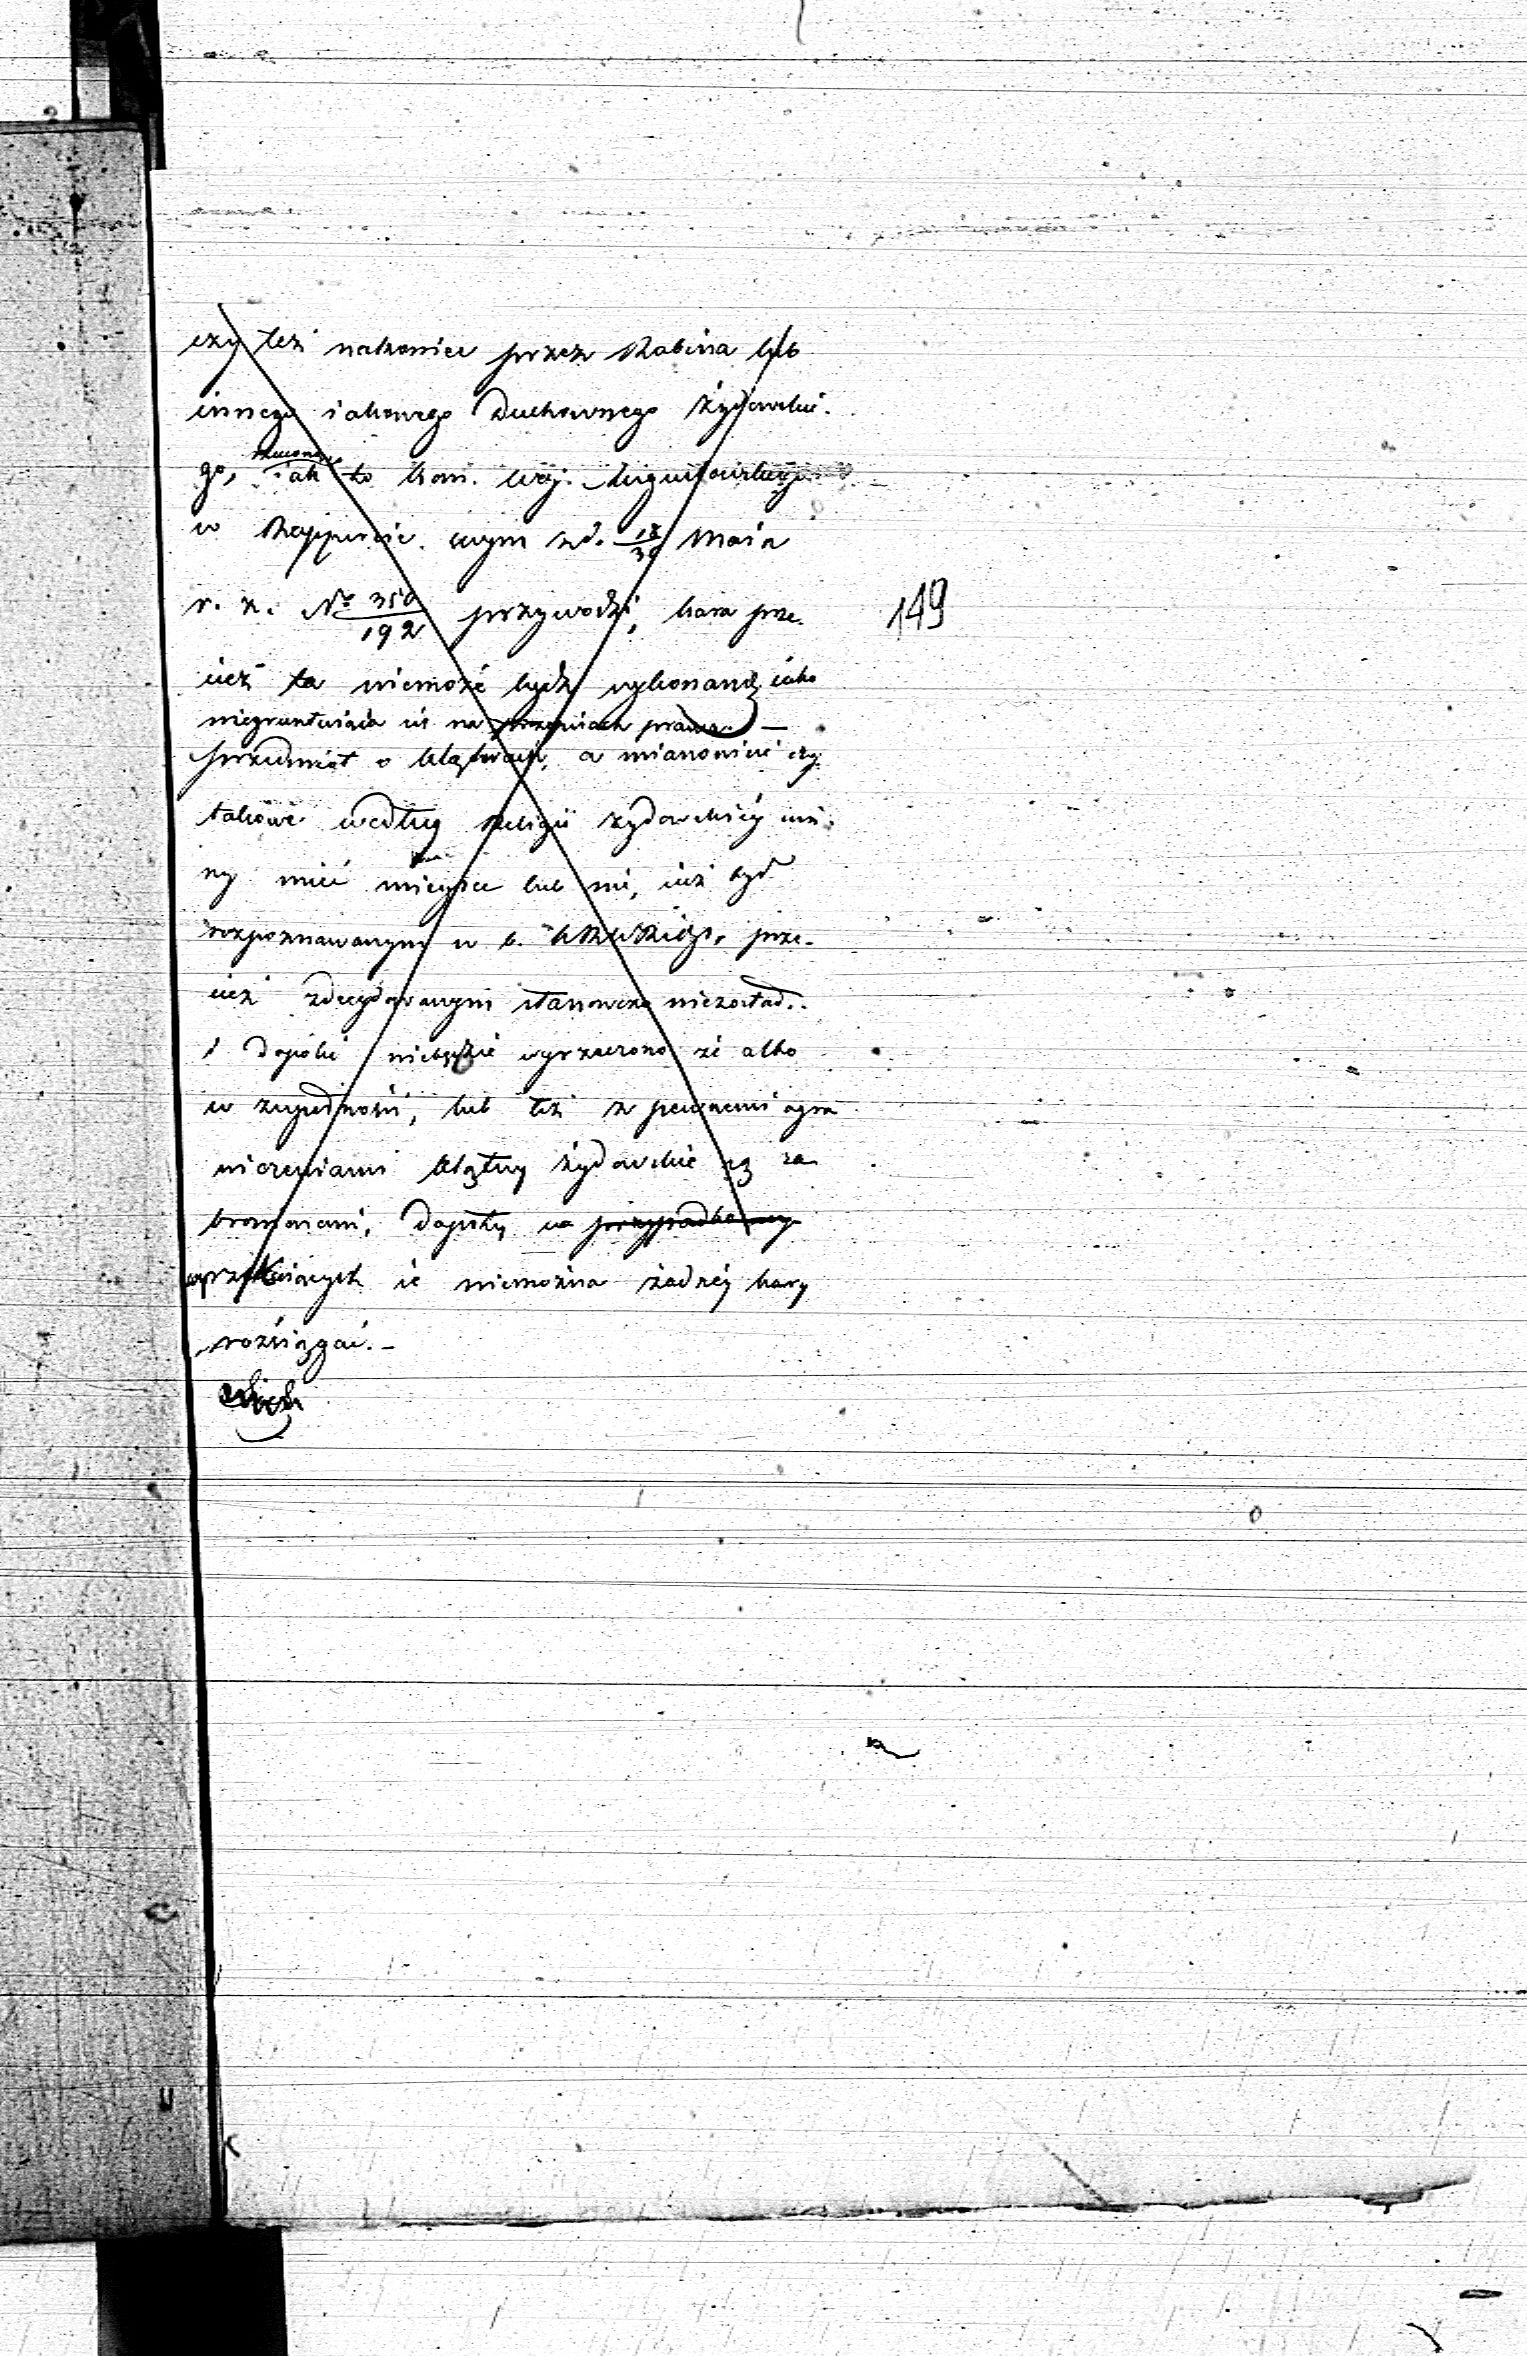 czy też nakoniec przez Rabina lub
innego iakowego Duchownego Żydowskie-
go, rzuconą iak to Kom. Woj. Augustowskiego
w Rapporcie swym z d. 18/30 Maia
r. z. No 350/192 przywodzi, kara prze-
149
cież ta niemoże bydź wykonaną iako
niegruntuiąca się na przepisach prawa. —
przedmiot o klątwach, a mianowicie czy
takowe według Religii żydowskiéy win-
ny mieć mieysce lub nie, iest był
rozpoznawanym w b. prze-
cież zdecydowanym stanowczo niezostał.
i dopóki niebędzie wyrzeczono że albo
w zupełności, lub też z pewnemi ogra
niczeniami klątwy żydowskie są za
bronionemi, dopóty na przypadkowey
wprzód się niemożna żadnéy kary
rozciągać. —